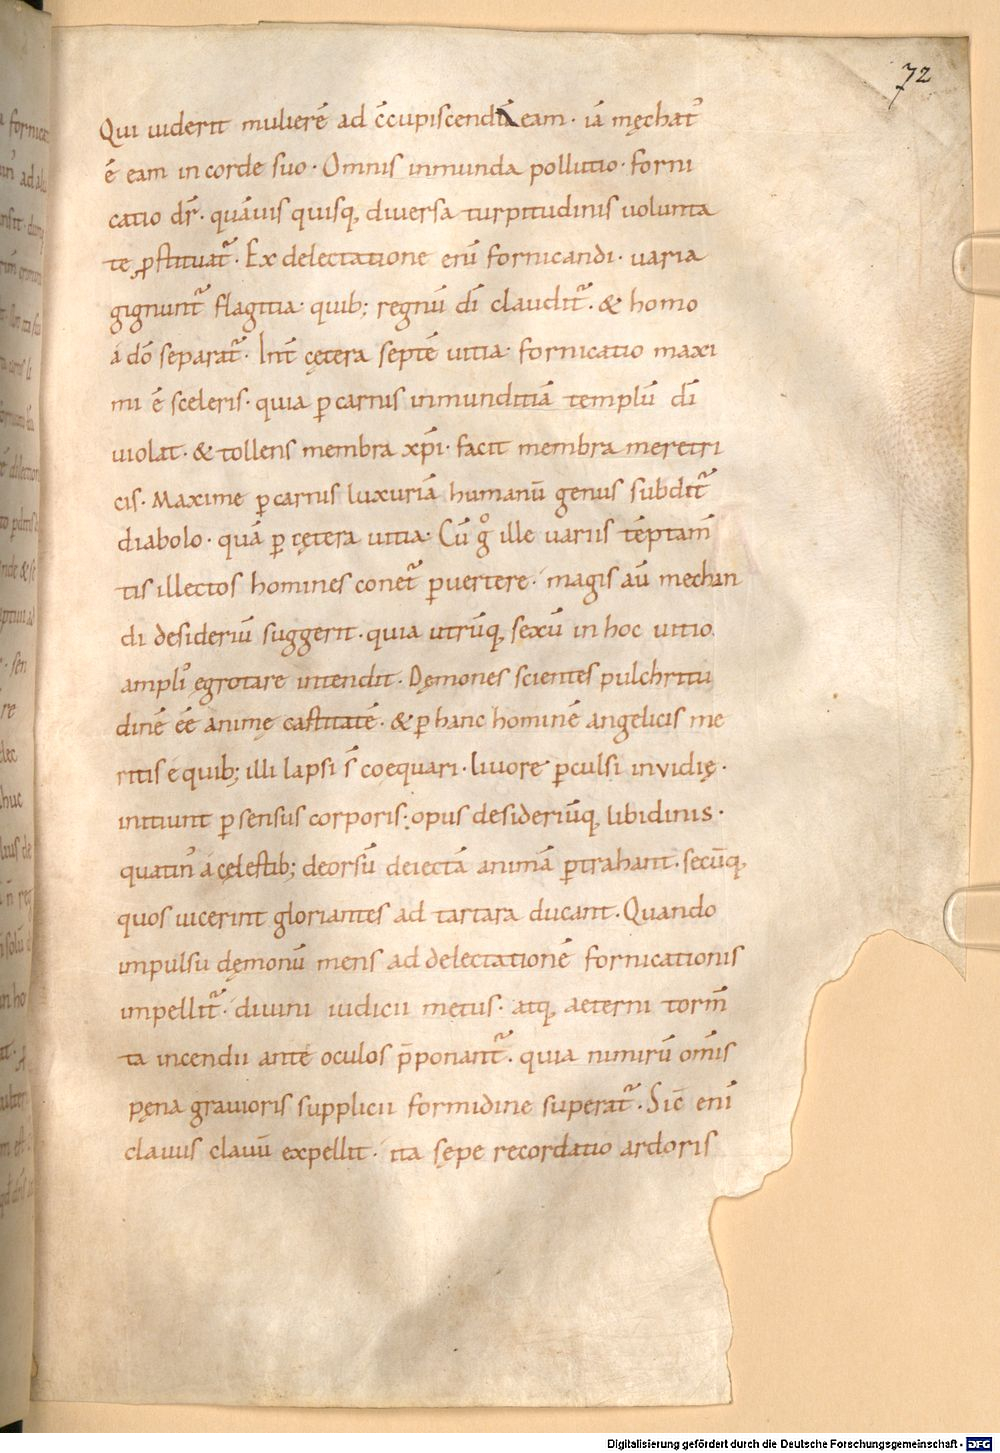 72
Qui uiderit mulierē ad c̄cupiscendū eam · iā męchat᷒
ē eam in corde suo · Omnis inmunda pollutio · forni
catio dr̄ · quāuis quisq, diuersa turpitudinis uolunta
te ꝓstituat᷒ · Ex delectatione enī fornicandi · uaria
gignunt᷒ flagitia · quib; regnū dī claudit᷒ · & homo
a dō separat᷒ · Int̄ cętera septē uitia · fornicatio maxi
mi ē sceleris · quia ꝑ carnis inmunditiā templū dī
uiolat · & tollens membra xp̄i · facit membra meretri
cis · Maxime ꝑ carnis luxuriā humanū genus subdit᷒
diabolo · quā ꝑ cętera uitia · Cū gͦ ille uariis tēptam̄
tis illectos homines conet᷒ ꝑuertere · magis aū mechan
di desideriū suggerit · quia utrūq, sexū in hoc uitio
ampli᷒ ęgrotare intendit · Dęmones scientes pulchritu
dinē eē animę castitatē · & ꝑ hanc hominē angelicis me
ritis e quib; illi lapsi s̄ coequari · liuore ꝑculsi inuidię ·
initiunt ꝑ sensus corporis · opus desideriūq, libidinis ·
quatin᷒ a cęlestib; deorsū deiectā animā ꝑtrahant · secūq,
quos uicerint gloriantes ad tartara ducant · Quando
impulsu dęmonū mens ad delectationē fornicationis
impellit᷒ · diuini iudicii metus · atq, aeterni torm̄
ta incendii ante oculos p̄ponant᷒ · quia nimirū om̄is
pęna grauioris supplicii formidine superat᷒ · Sic̄ enī
clauus clauū expellit · ita sępe recordatio ardoris
Digitalisierung gefördert durch die Deutsche Forschungsgemeinschaft - DFG